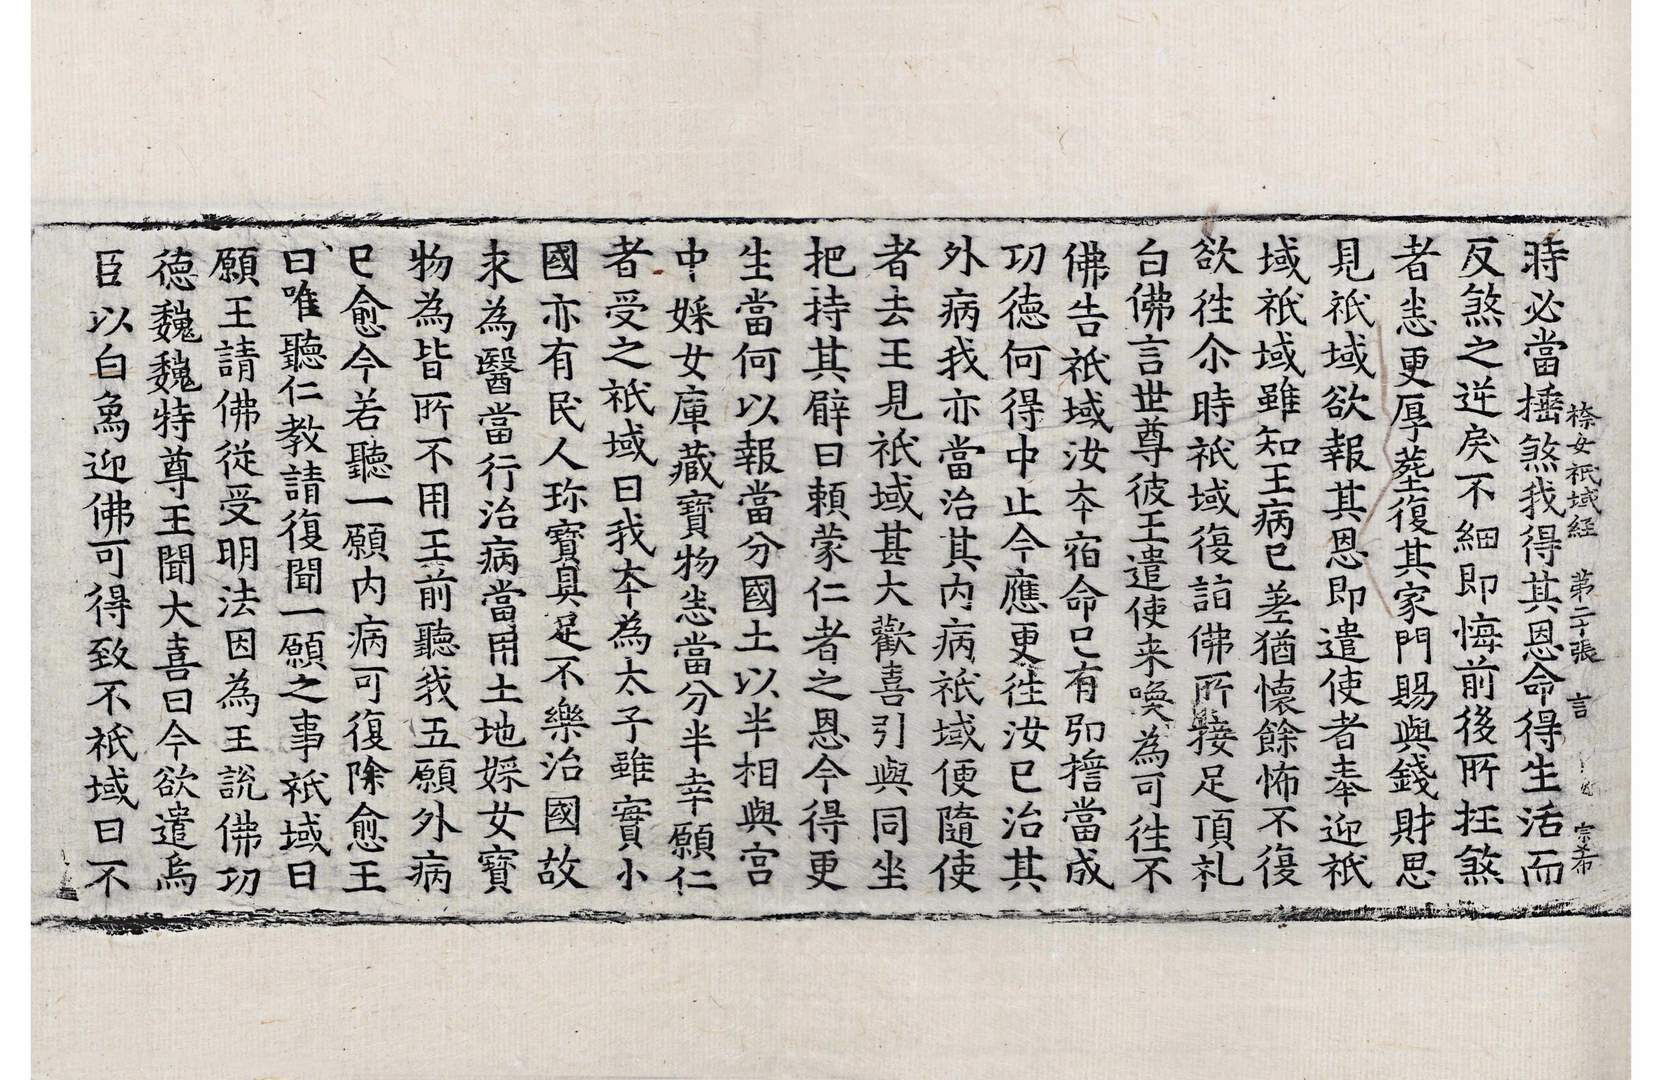 㮈女祇域經 第二十張 言 宗希
時必當捶煞我得其恩命得生活而
反煞之逆戾不細即悔前後所抂煞
者悉更厚葬復其家門賜與錢財思
見祇域欲報其恩即遣使者奉迎祇
域祇域雖知王病已差猶懷餘怖不復
欲徃尒時祇域復詣佛所接足頂礼
白佛言世尊彼王遣使来喚為可徃不
佛告祇域汝本宿命已有弘擔當成
功德何得中止今應更徃汝已治其
外病我亦當治其内病祇域便隨使
者去王見祇域甚大歡喜引與同坐
把持其臂曰賴蒙仁者之恩今得更
生當何以報當分國土以半相與宮
中婇女庫藏寶物悉當分半幸願仁
者受之祇域曰我本為太子雖實小
國亦有民人珎寶具足不樂治國故
求為醫當行治病當用土地婇女寶
物為皆所不用王前聽我五願外病
已愈今若聽一願内病可復除愈王
曰唯聽仁教請復聞一願之事祇域曰
願王請佛從受明法因為王説佛功
德巍巍特尊王聞大喜曰今欲遣烏
臣以白象迎佛可得致不祇域曰不